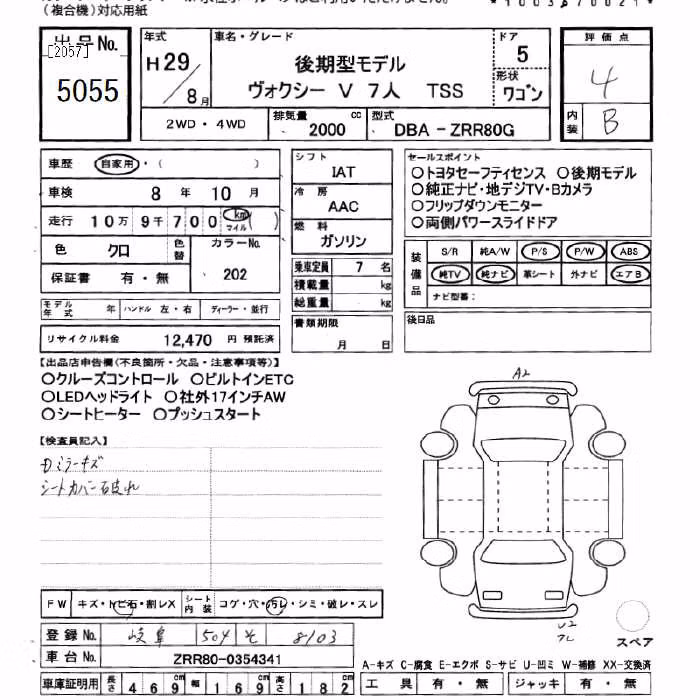 (複合機)対応用紙
*1003570021*
出品No.
[2057]
5055
年式
H29/8月
車名・グレード
後期型モデル
ヴォクシー V 7人 TSS
ドア
5
形状
ワゴン
評価点
4
内装
B
2WD・4WD
排気量
2000 cc
型式
DBA-ZRR80G
車歴 自家用・( )
車検 8年 10月
走行 10万9千700 km マイル ( )
色 クロ
色替
カラーNo.
202
保証書 有・無
モデル年式 年 ハンドル 左・右 ディーラー・並行
リサイクル料金 12,470 円 預託済
シフト
IAT
冷房
AAC
燃料
ガソリン
乗車定員 7 名
積載量 kg
総重量 kg
書類期限
月 日
セールスポイント
○トヨタセーフティセンス ○後期モデル
○純正ナビ・地デジTV・Bカメラ
○フリップダウンモニター
○両側パワースライドドア
装備品
S/R 純A/W P/S P/W ABS
純TV 純ナビ 革シート 外ナビ エアB
ナビ型番:
後日品
【出品店申告欄(不良箇所・欠品・注意事項等)】
○クルーズコントロール ○ビルトインETC
○LEDヘッドライト ○社外17インチAW
○シートヒーター ○プッシュスタート
【検査員記入】
Dミラーキズ
シートカバー破れ
A2
U2
FW キズ・トビ石・割レX シート内装 コゲ・穴・汚レ・シミ・破レ・スレ
登録No. 岐阜 504 そ 8103
車台No. ZRR80-0354341
スペア
A-キズ C-腐食 E-エクボ S-サビ U-凹ミ W-補修 XX-交換済
車庫証明用 長さ 469 幅 169 高さ 182
工具 有・無 ジャッキ 有・無